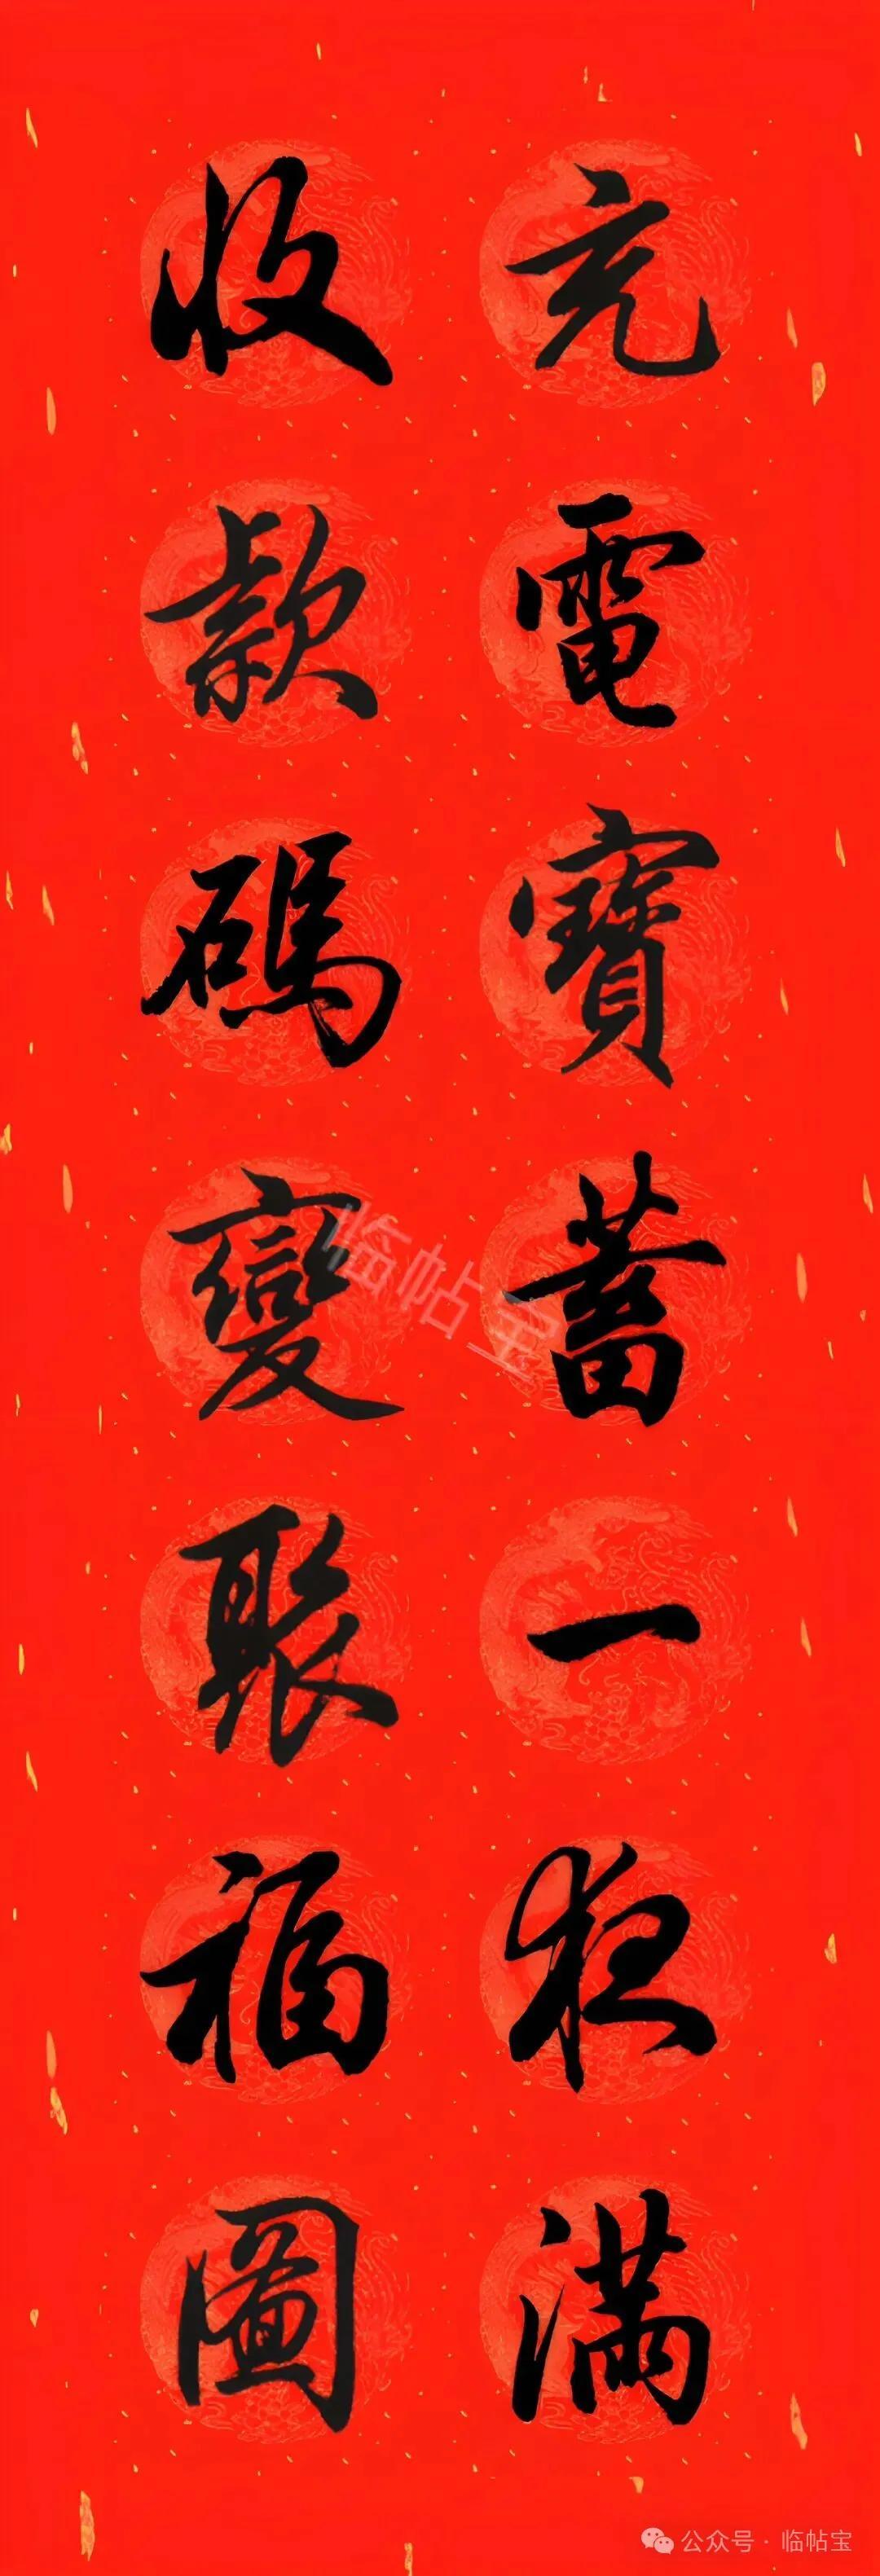 充電寶蓄一夜滿
收款碼變聚福圖
临帖宝
公众号·临帖宝